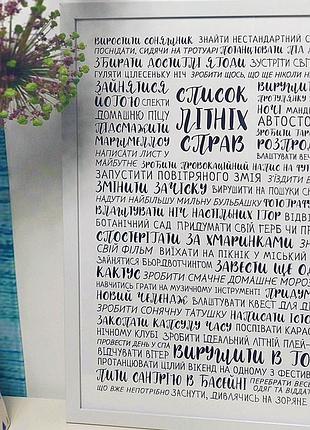 ВИРОСТИТИ СОНЯШНИК ЗНАЙТИ НЕСТАНДАРТНИЙ С
ПОСНІДАТИ, СИДЯЧИ НА ТРОТУАРІ ПОТАНЦЮВАТИ ПІД
ЗБИРАТИ ДОСТИГЛІ ЯГОДИ ЗУСТРІТИ СВІТ
ГУЛЯТИ ЦІЛЕСЕНЬКУ НІЧ ЗРОБИТИ ЩОСЬ, ЩО ЩЕ НІКОЛИ Н
ЗАЙНЯТИСЯ
ЙОГОЮ СПЕКТИ
ДОМАШНЮ ПІЦУ
ПІДСМАЖИТИ
МАРШМЕЛЛОУ
НАПИСАТИ ЛИСТ У
СПИСОК
ЛІТНІХ
СПРАВ
ВИРУШИТИ
НОЧІ МАНД
АВТОСТО
РОЗПРОД
ВЛАШТУВАТИ ВЕЧ
МАЙБУТНЄ ЗРОБИТИ ПРОВОКАЦІЙНИЙ НАПИС НА ФУТ
ЗАПУСТИТИ ПОВІТРЯНОГО ЗМІЯ З'ЇЗДИТИ
ЗМІНИТИ ЗАЧІСКУ ВИРУШИТИ НА ПОШУКИ С
НАДУТИ НАЙБІЛЬШУ МИЛЬНУ БУЛЬБАШКУ
ВЛАШТУВАТИ НІЧ НАСТІЛЬНИХ ІГОР ВІДВІ
БОТАНІЧНИЙ САД ПРИДУМАТИ СВІЙ ГЕРБ ЧИ ПР
СПОСТЕРІГАТИ ЗА ХМАРИНКАМИ ЗН
СВІЙ ФІЛЬМ ВИЇХАТИ НА ПІКНІК У МІСЬКИЙ
ЗАЙНЯТИСЯ БЬОРДВОТЧИНГОМ ЗАВЕСТИ ЩЕ ОД
КАКТУС ЗРОБИТИ СМАЧНЕ ДОМАШНЄ МОРОЗ
НАВЧИТИСЬ ГРАТИ НА МУЗИЧНОМУ ІНСТРУМЕНТІ ПРИДУМ
НОВИЙ ЧЕЛЕНДЖ ВЛАШТУВАТИ КВЕСТ ДЛЯ Д
ЗРОБИТИ СОНЯЧНУ ТАТУШКУ НАПИСАТИ ІСТО
ЗАКОПАТИ КАПСУЛУ ЧАСУ ПОСПІВАТИ КАРАО
НІЧНОМУ КЛУБІ ЗРОБИТИ ІДЕАЛЬНИЙ ЛІТНІЙ ПЛЕЙ
ПРОВЕСТИ ДЕНЬ У СПА
ВІДЧУВАТИ ВІТЕР ВИРУШИТИ В ГО
ПРОТАНЦЮВАТИ ЦІЛИЙ ВІКЕНД НА ОДНОМУ З ФЕСТИВ
ПИТИ САНГРІЮ В БАСЕЙНІ ПЕРЕБРАТИ ВЕСЬ
ОДЯГ ТА ВІДДАТ
ЩО ВЖЕ НЕПОТРІБНО ЗАСНУТИ, ДИВЛЯЧИСЬ НА ЗОРЯНЕ